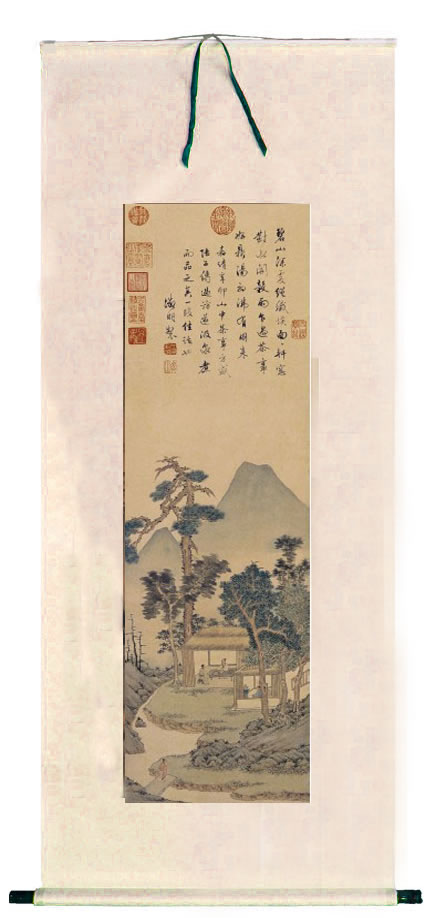 碧山深處絕纖埃面〻軒窗
對水開穀雨乍過茶事
好鼎湯初沸有朋來
嘉靖辛卯山中茶事方盛
陸子傳過訪遂汲泉煮
而品之真一段佳話也
徵明製